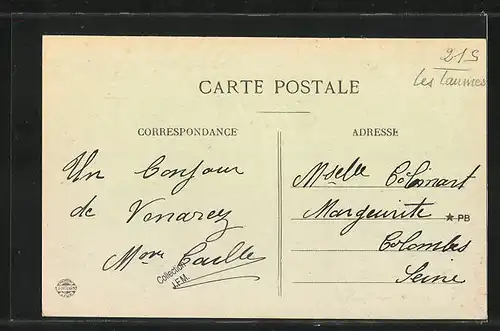 215
Les Laumes
CARTE POSTALE
CORRESPONDANCE
Un Bonjour
de Venarey
Mme Caille
Collection
J.F.M.
ADRESSE
Mselle Colomart
Marguerite
★ PB
Colombes
Seine